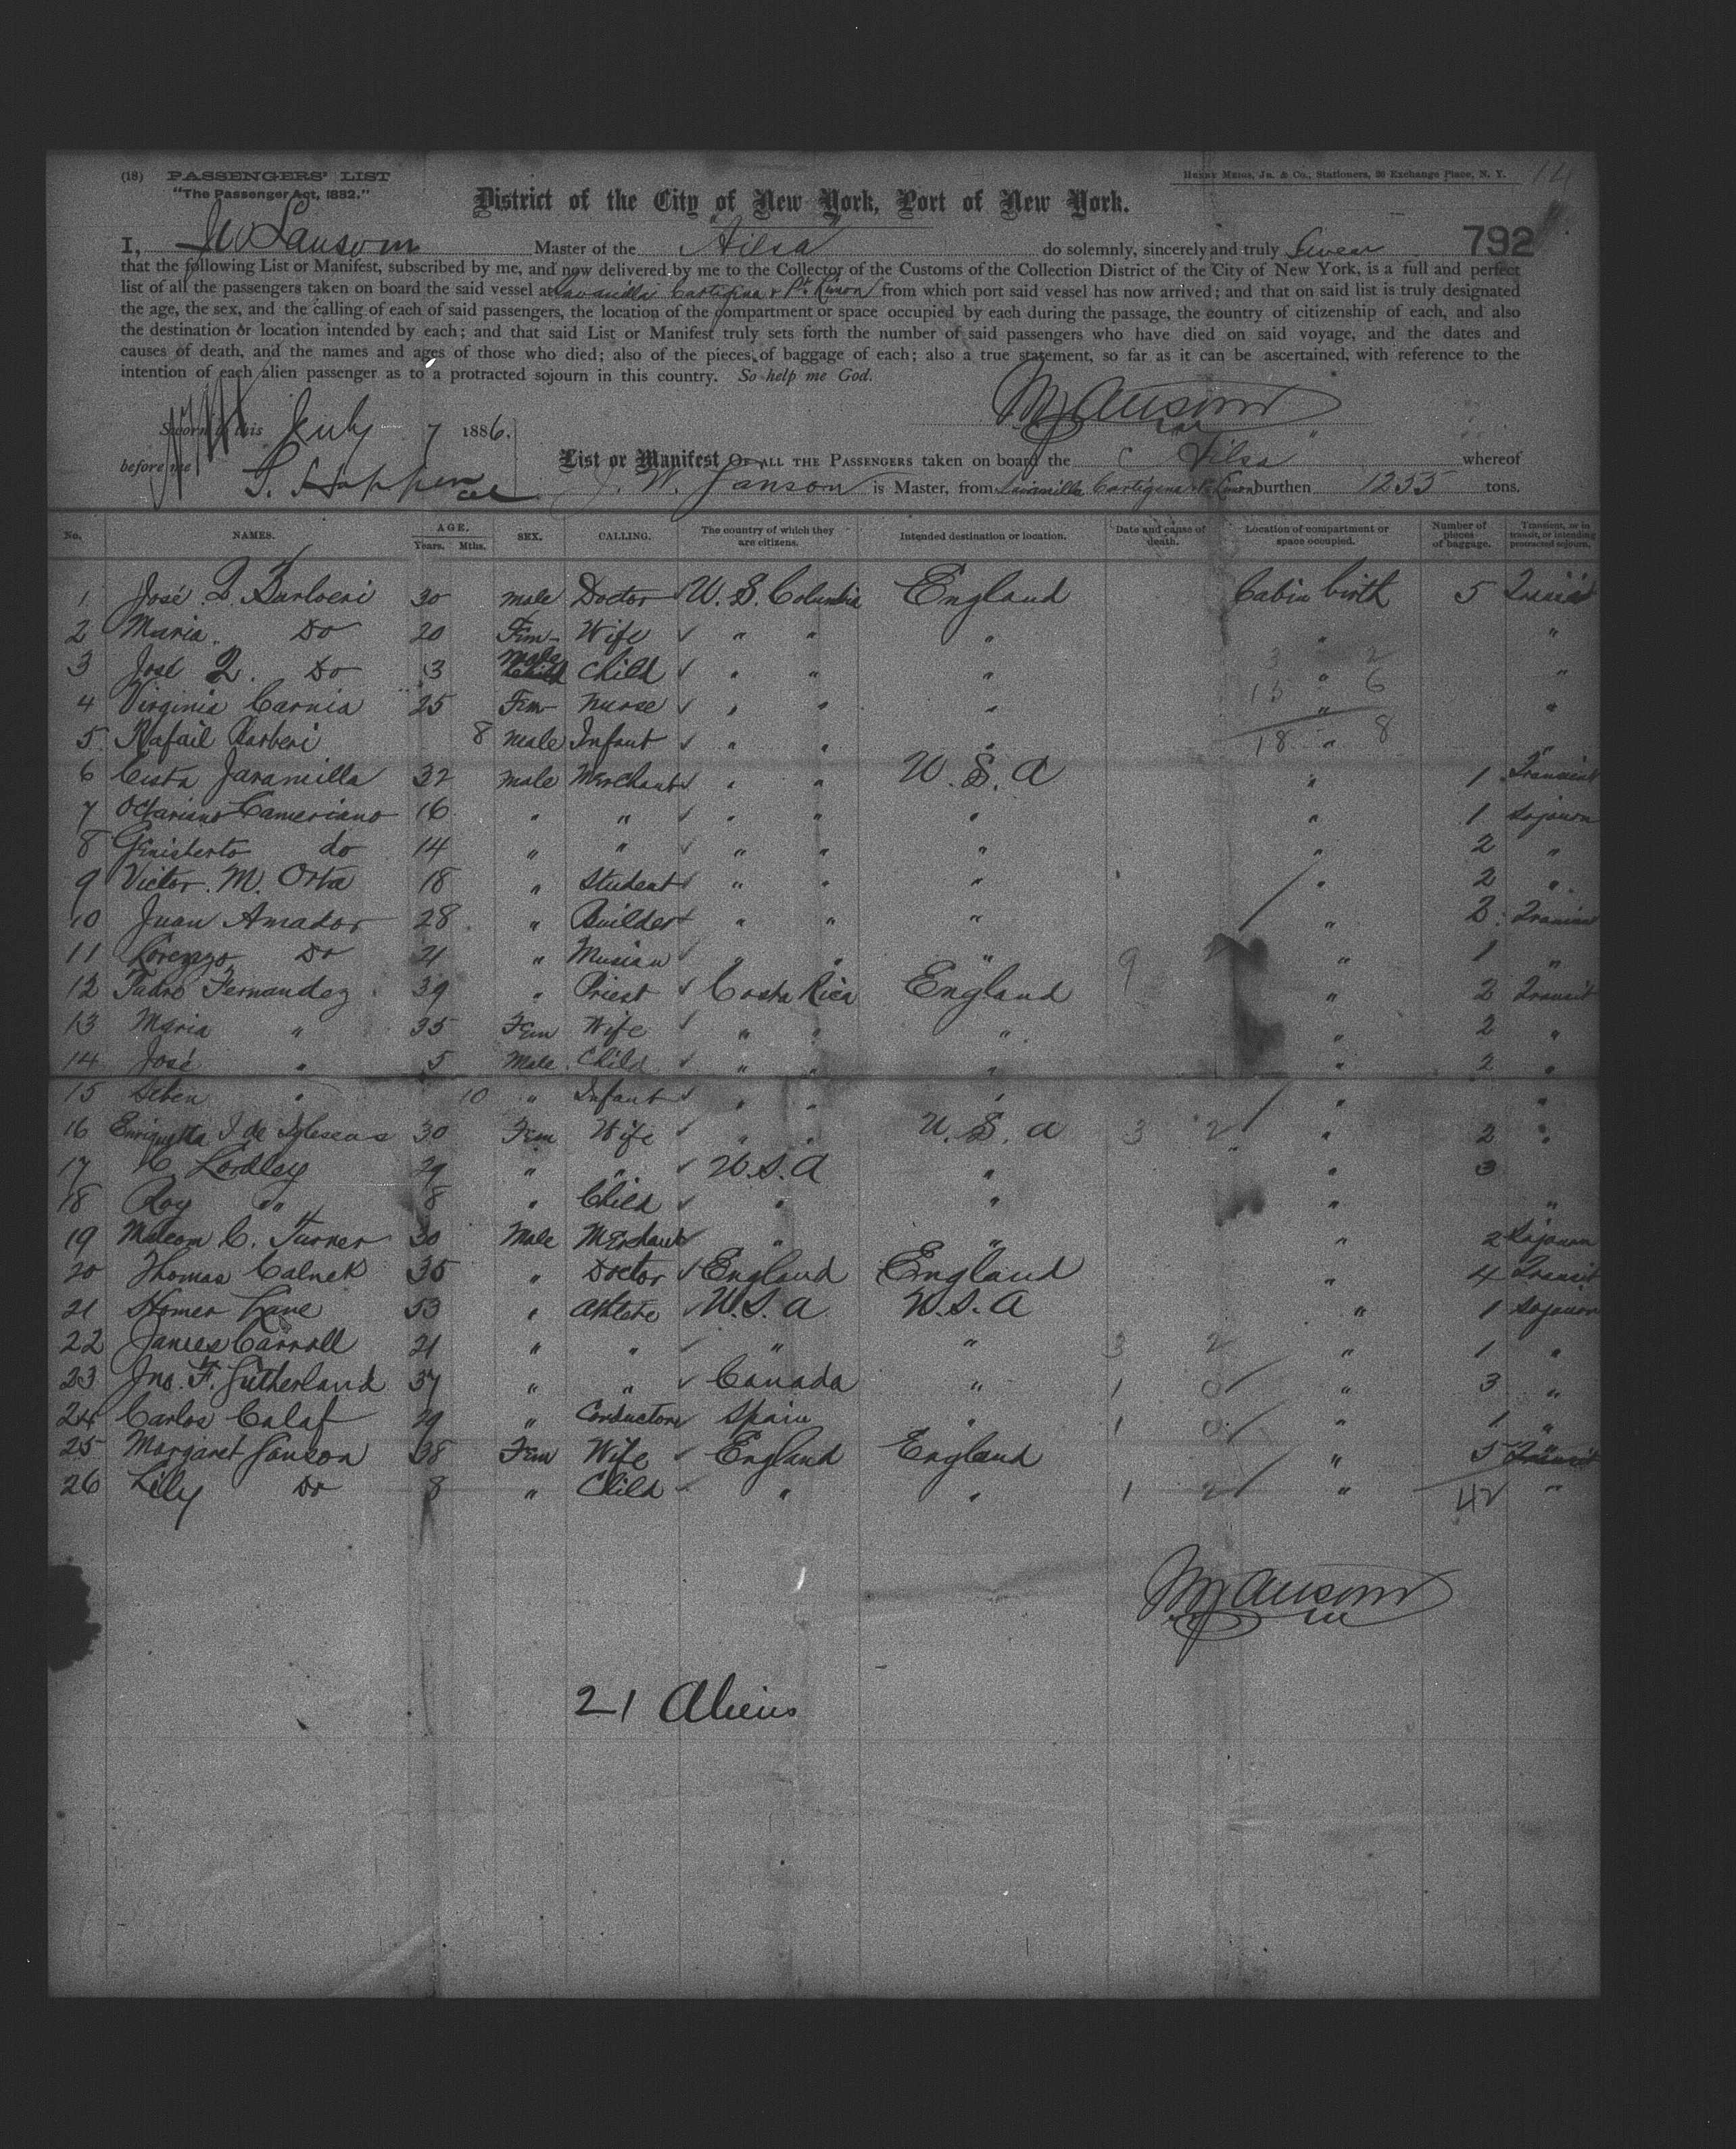 (18) PASSENGERS' LIST
"The Passenger Act, 1882."
HENRY MEIGS, JR. & CO., Stationers, 26 Exchange Place, N. Y.
District of the City of New York, Port of New York.
792
I, Master of the "Ailsa" do solemnly, sincerely and truly Swear
that the following List or Manifest, subscribed by me, and now delivered by me to the Collector of the Customs of the Collection District of the City of New York, is a full and perfect
list of all the passengers taken on board the said vessel at Savanilla Cartigena & Pt. Limon from which port said vessel has now arrived; and that on said list is truly designated
the age, the sex, and the calling of each of said passengers, the location of the compartment or space occupied by each during the passage, the country of citizenship of each, and also
the destination or location intended by each; and that said List or Manifest truly sets forth the number of said passengers who have died on said voyage, and the dates and
causes of death, and the names and ages of those who died; also of the pieces of baggage of each; also a true statement, so far as it can be ascertained, with reference to the
intention of each alien passenger as to a protracted sojourn in this country. So help me God.
Sworn to this July 7 1886.
before me
List or Manifest OF ALL THE PASSENGERS taken on board the "Ailsa" whereof
J. W. Sansom is Master, from Savanilla Cartigena & Pt. Limon burthen 1255 tons.
No. NAMES. AGE. Years. Mths. SEX. CALLING. The country of which they are citizens. Intended destination or location. Date and cause of death. Location of compartment or space occupied. Number of pieces of baggage. Transient, or in transit, or intending protracted sojourn.
1 José Barberi 30 male Doctor U. S. Columbia England Cabin birth 5 Transit
2 Maria Do 20 Fem Wife " " " " "
3 José Do 3 male Child " " " " "
4 Virginia Carnia 25 Fem Nurse " " " " "
5 Rafail Barberi 8 male Infant " " " " "
6 Jaramilla 32 male Merchant " " U. S. A " 1 Transient
7 Octariano Cameriano 16 " " " " " " 1 Sojourn
8 do 14 " " " " " " 2 "
9 Victor. M. Orta 18 " Student " " " " 2 "
10 Juan Amador 28 " Builder " " " " Transient
11 Lorenzo Do 21 " Musian " " " " 1 "
12 Fernandez 39 " Priest Costa Rica England " 2 Transit
13 Maria " 35 Fem Wife " " " " 2 "
14 José " 5 Male Child " " " " 2 "
15 " 10 " Infant " " " " "
16 Enriquetta I de Igleseas 30 Fem Wife " " U. S. A " 2 "
17 C. Lordley 29 " " U. S. A " " 3
18 Roy " 8 " Child " " " "
19 Malcom C. Turner 30 Male Merchant " " " 2 Sojourn
20 Thomas Calnek 35 " Doctor England England " 4 Transit
21 Homer Lane 53 " Athlete U. S. A U. S. A " 1 Sojourn
22 James Carroll 21 " " " " " 1 "
23 Jno. F. Sutherland 37 " " Canada " " 3 "
24 Carlos Calaf 29 " Conductore Spain " " 1 "
25 Margaret Sanson 38 Fem Wife England England " 5 Transit
26 Lily Do 8 " Child " " " "
42
21 Aliens